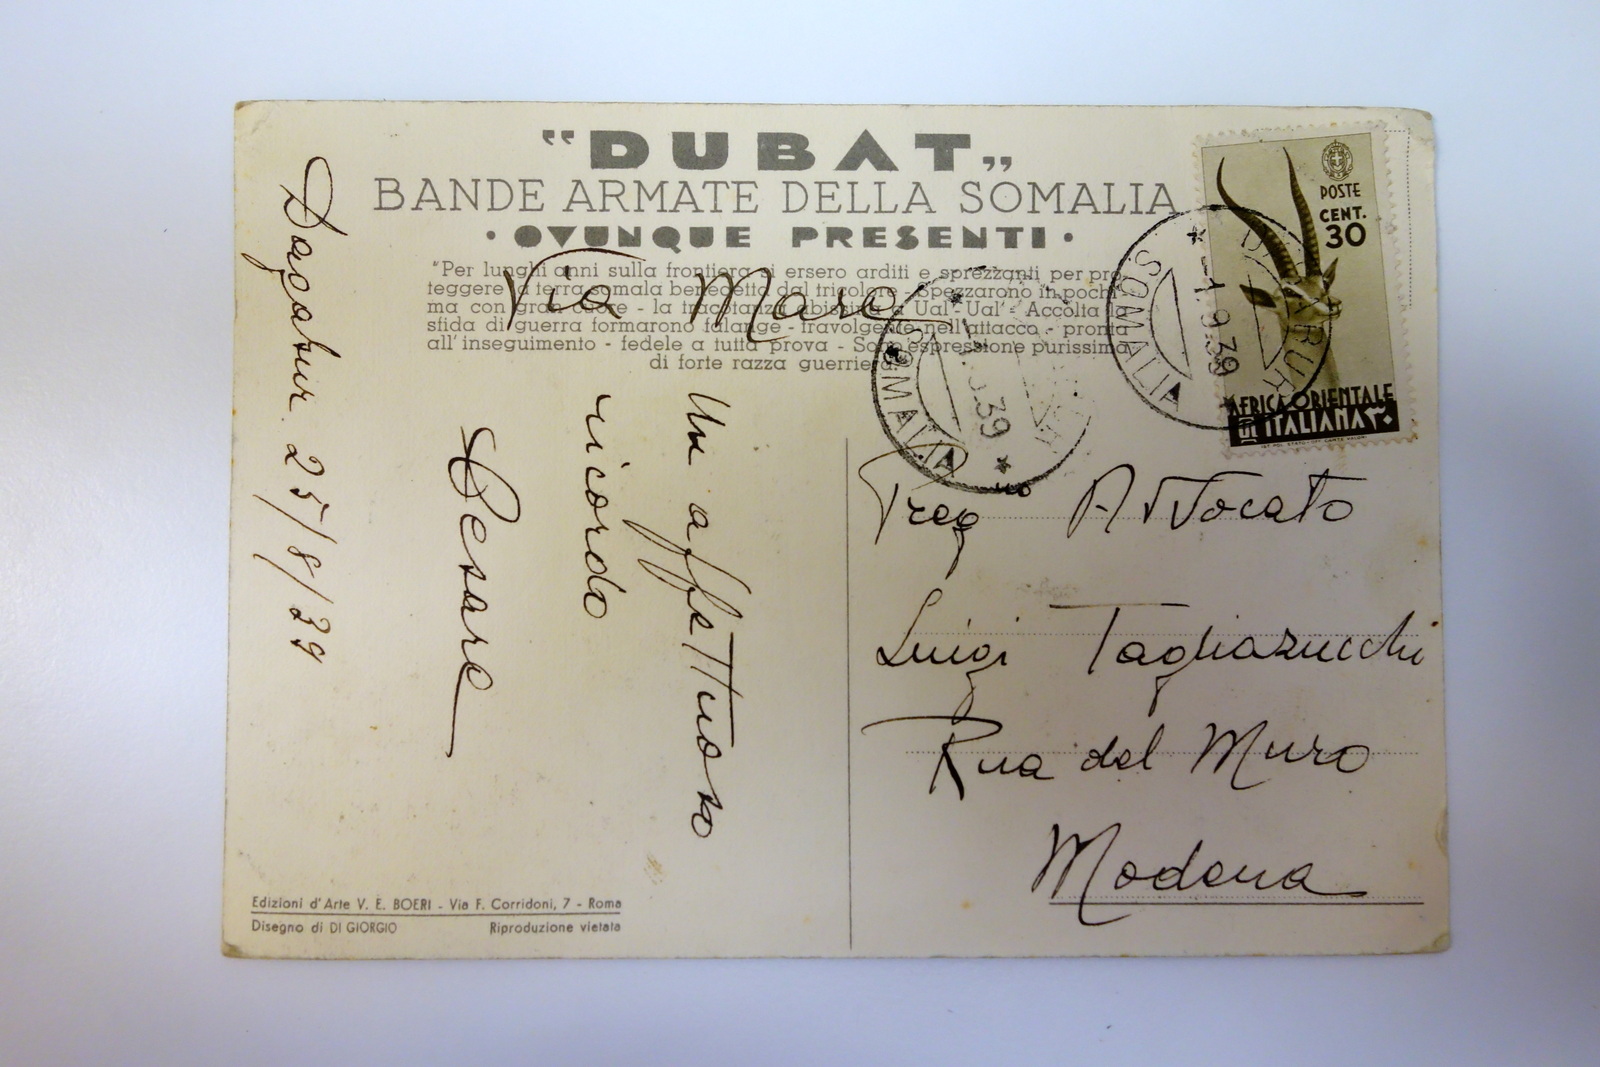 "DUBAT„
BANDE ARMATE DELLA SOMALIA
· OVUNQUE PRESENTI ·
"Per lunghi anni sulla frontiera si ersero arditi e sprezzanti per pro-
teggere la terra somala benedetta dal tricolore - Spezzarono in pochi
ma con gran cuore - la tracotanza abissina a Ual - Ual' - Accolta la
sfida di guerra formarono falange - travolgente nell'attacco - pronta
all'inseguimento - fedele a tutta prova - Sono espressione purissima
di forte razza guerriera.
Via Mare
Dagabur 25/8/39
Un affettuoso
ricordo
Cesare
POSTE
CENT.
30
AFRICA ORIENTALE
ITALIANA
SOMALIA
-1.9.39
SOMALIA
39
Preg Avvocato
Luigi Tagliazucchi
Rua del Muro
Modena
Edizioni d'Arte V. E. BOERI - Via F. Corridoni, 7 - Roma
Disegno di DI GIORGIO Riproduzione vietata